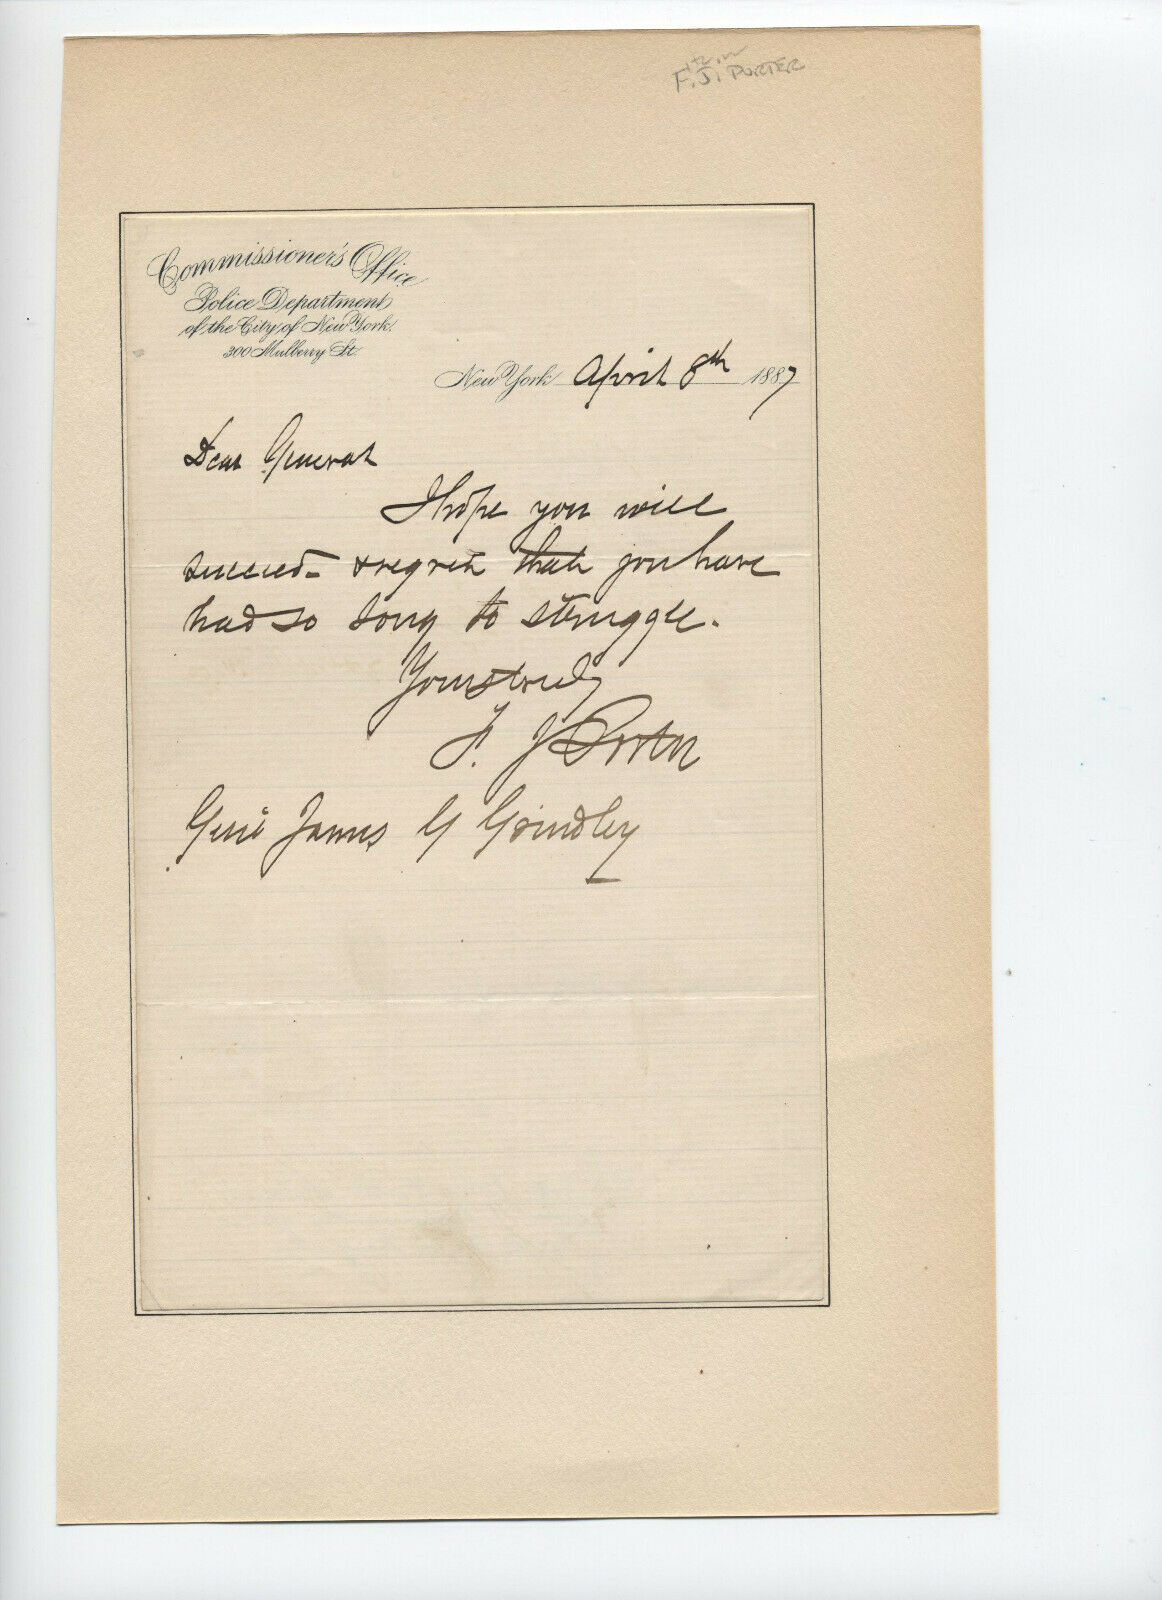 F. J. PORTER
Commissioner's Office
Police Department
of the City of New York.
300 Mulberry St.
New York April 8th 1887
Dear General
I hope you will
succeed - & regret that you have
had so long to struggle.
Yours truly
F. J Porter
Genl James G Grindley